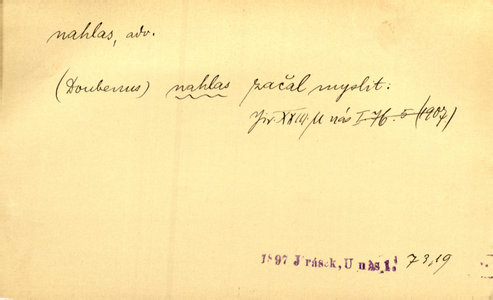 nahlas, adv.
(Doubenus) nahlas začal myslit:
Jir. XXIII/U nás I. 76. 5 (1907)
1897 Jirásek, U nás 1. 73,19